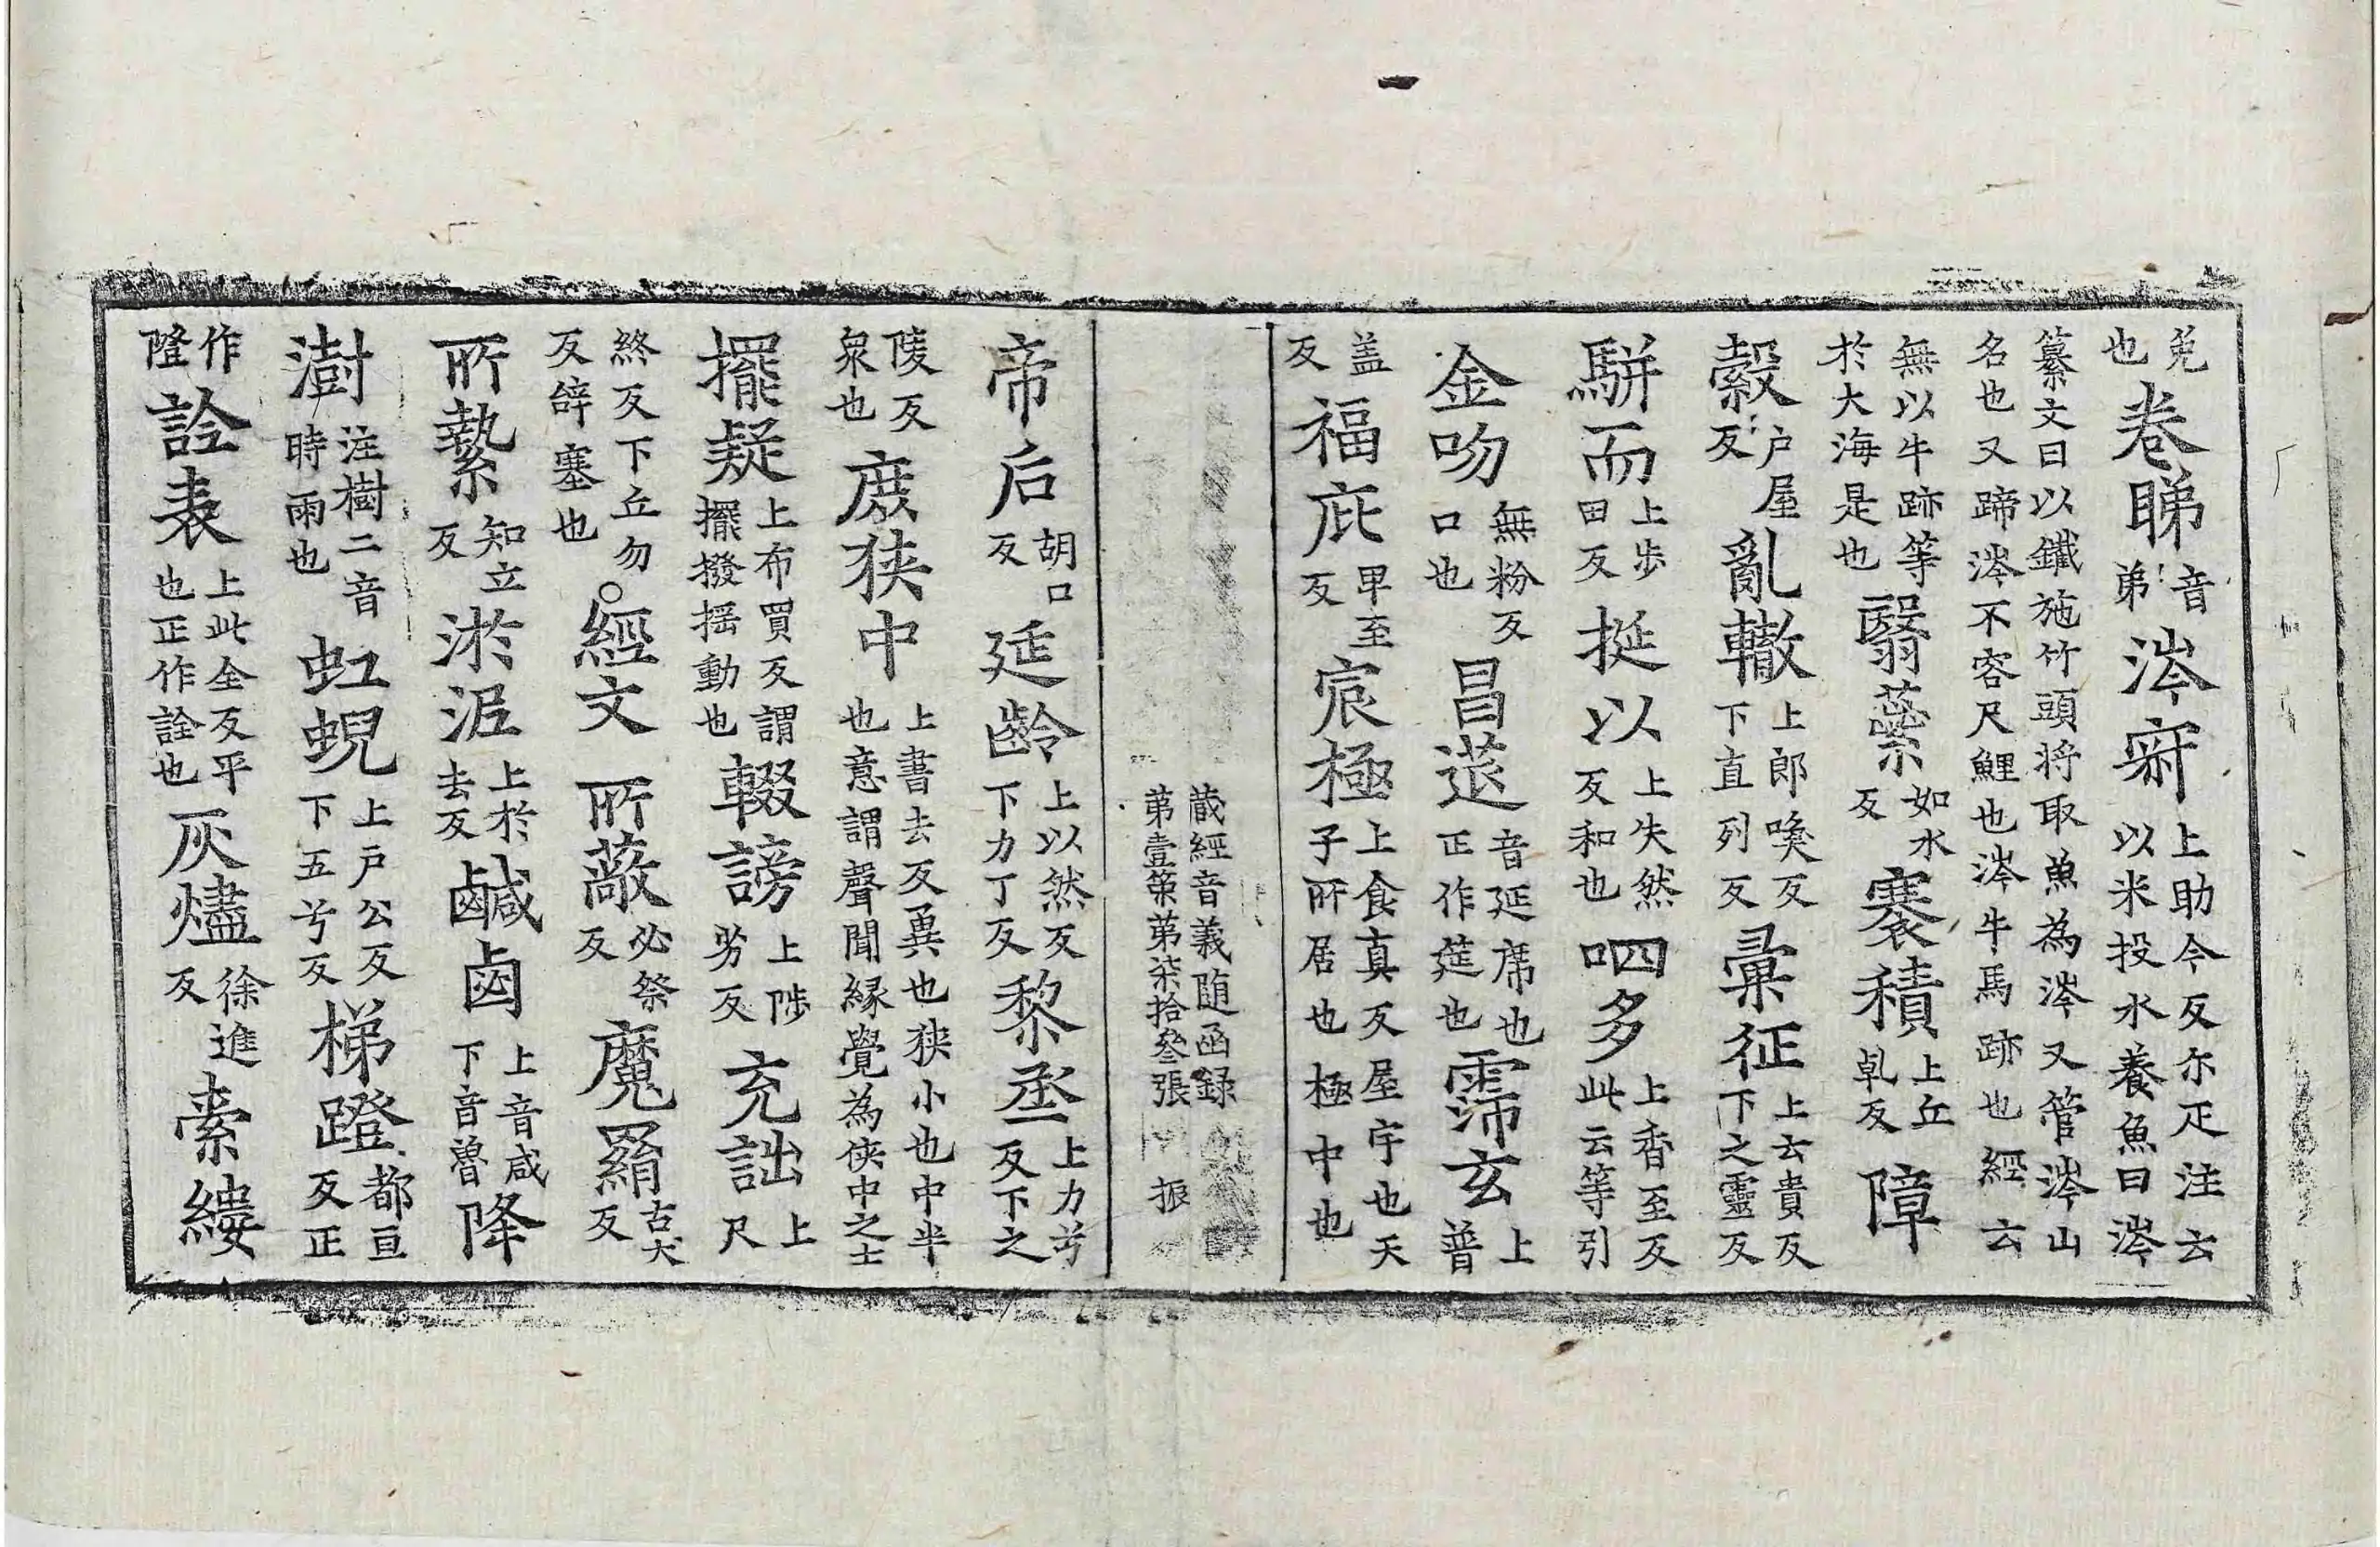 免也卷睇音弟涔㝮上助今反尓疋注云以米投水養魚曰涔
纂文曰以鐵施竹頭将取魚為涔又管涔山名也又蹄涔不容尺鯉也涔牛馬跡也經云
無以牛跡等於大海是也翳蘂如水反褰積上丘乹反障
縠户屋反亂轍上郎喚反下直列反彙征上云貴反下之靈反
駢而上步田反挺以上失然反和也呬多上香至反此云等引
金吻無粉反口也昌莚音延席也正作筵也霈玄上普
盖反福庇卑至反宸極上食真反屋宇也天子所居也極中也
蔵經音義随函録
第壹筞第柒拾叄張 振
帝后胡口反延齡上以然反下力丁反黎烝上力兮反下之
陵反衆也庶狹中上書去反兾也狹小也中半也意謂聲聞縁覺為狹中之士
擺疑上布買反謂擺撥揺動也輟謗上陟劣反充詘上尺
終反下丘勿反辞塞也○經文所蔽必祭反魔羂古犬反
所縶知立反淤泥上於去反鹹鹵上音咸下音魯降
澍注樹二音時雨也虹蜺上户公反下五兮反梯蹬都亘反正
作隥詮表上此全反平也正作詮也灰燼徐進反橐縷